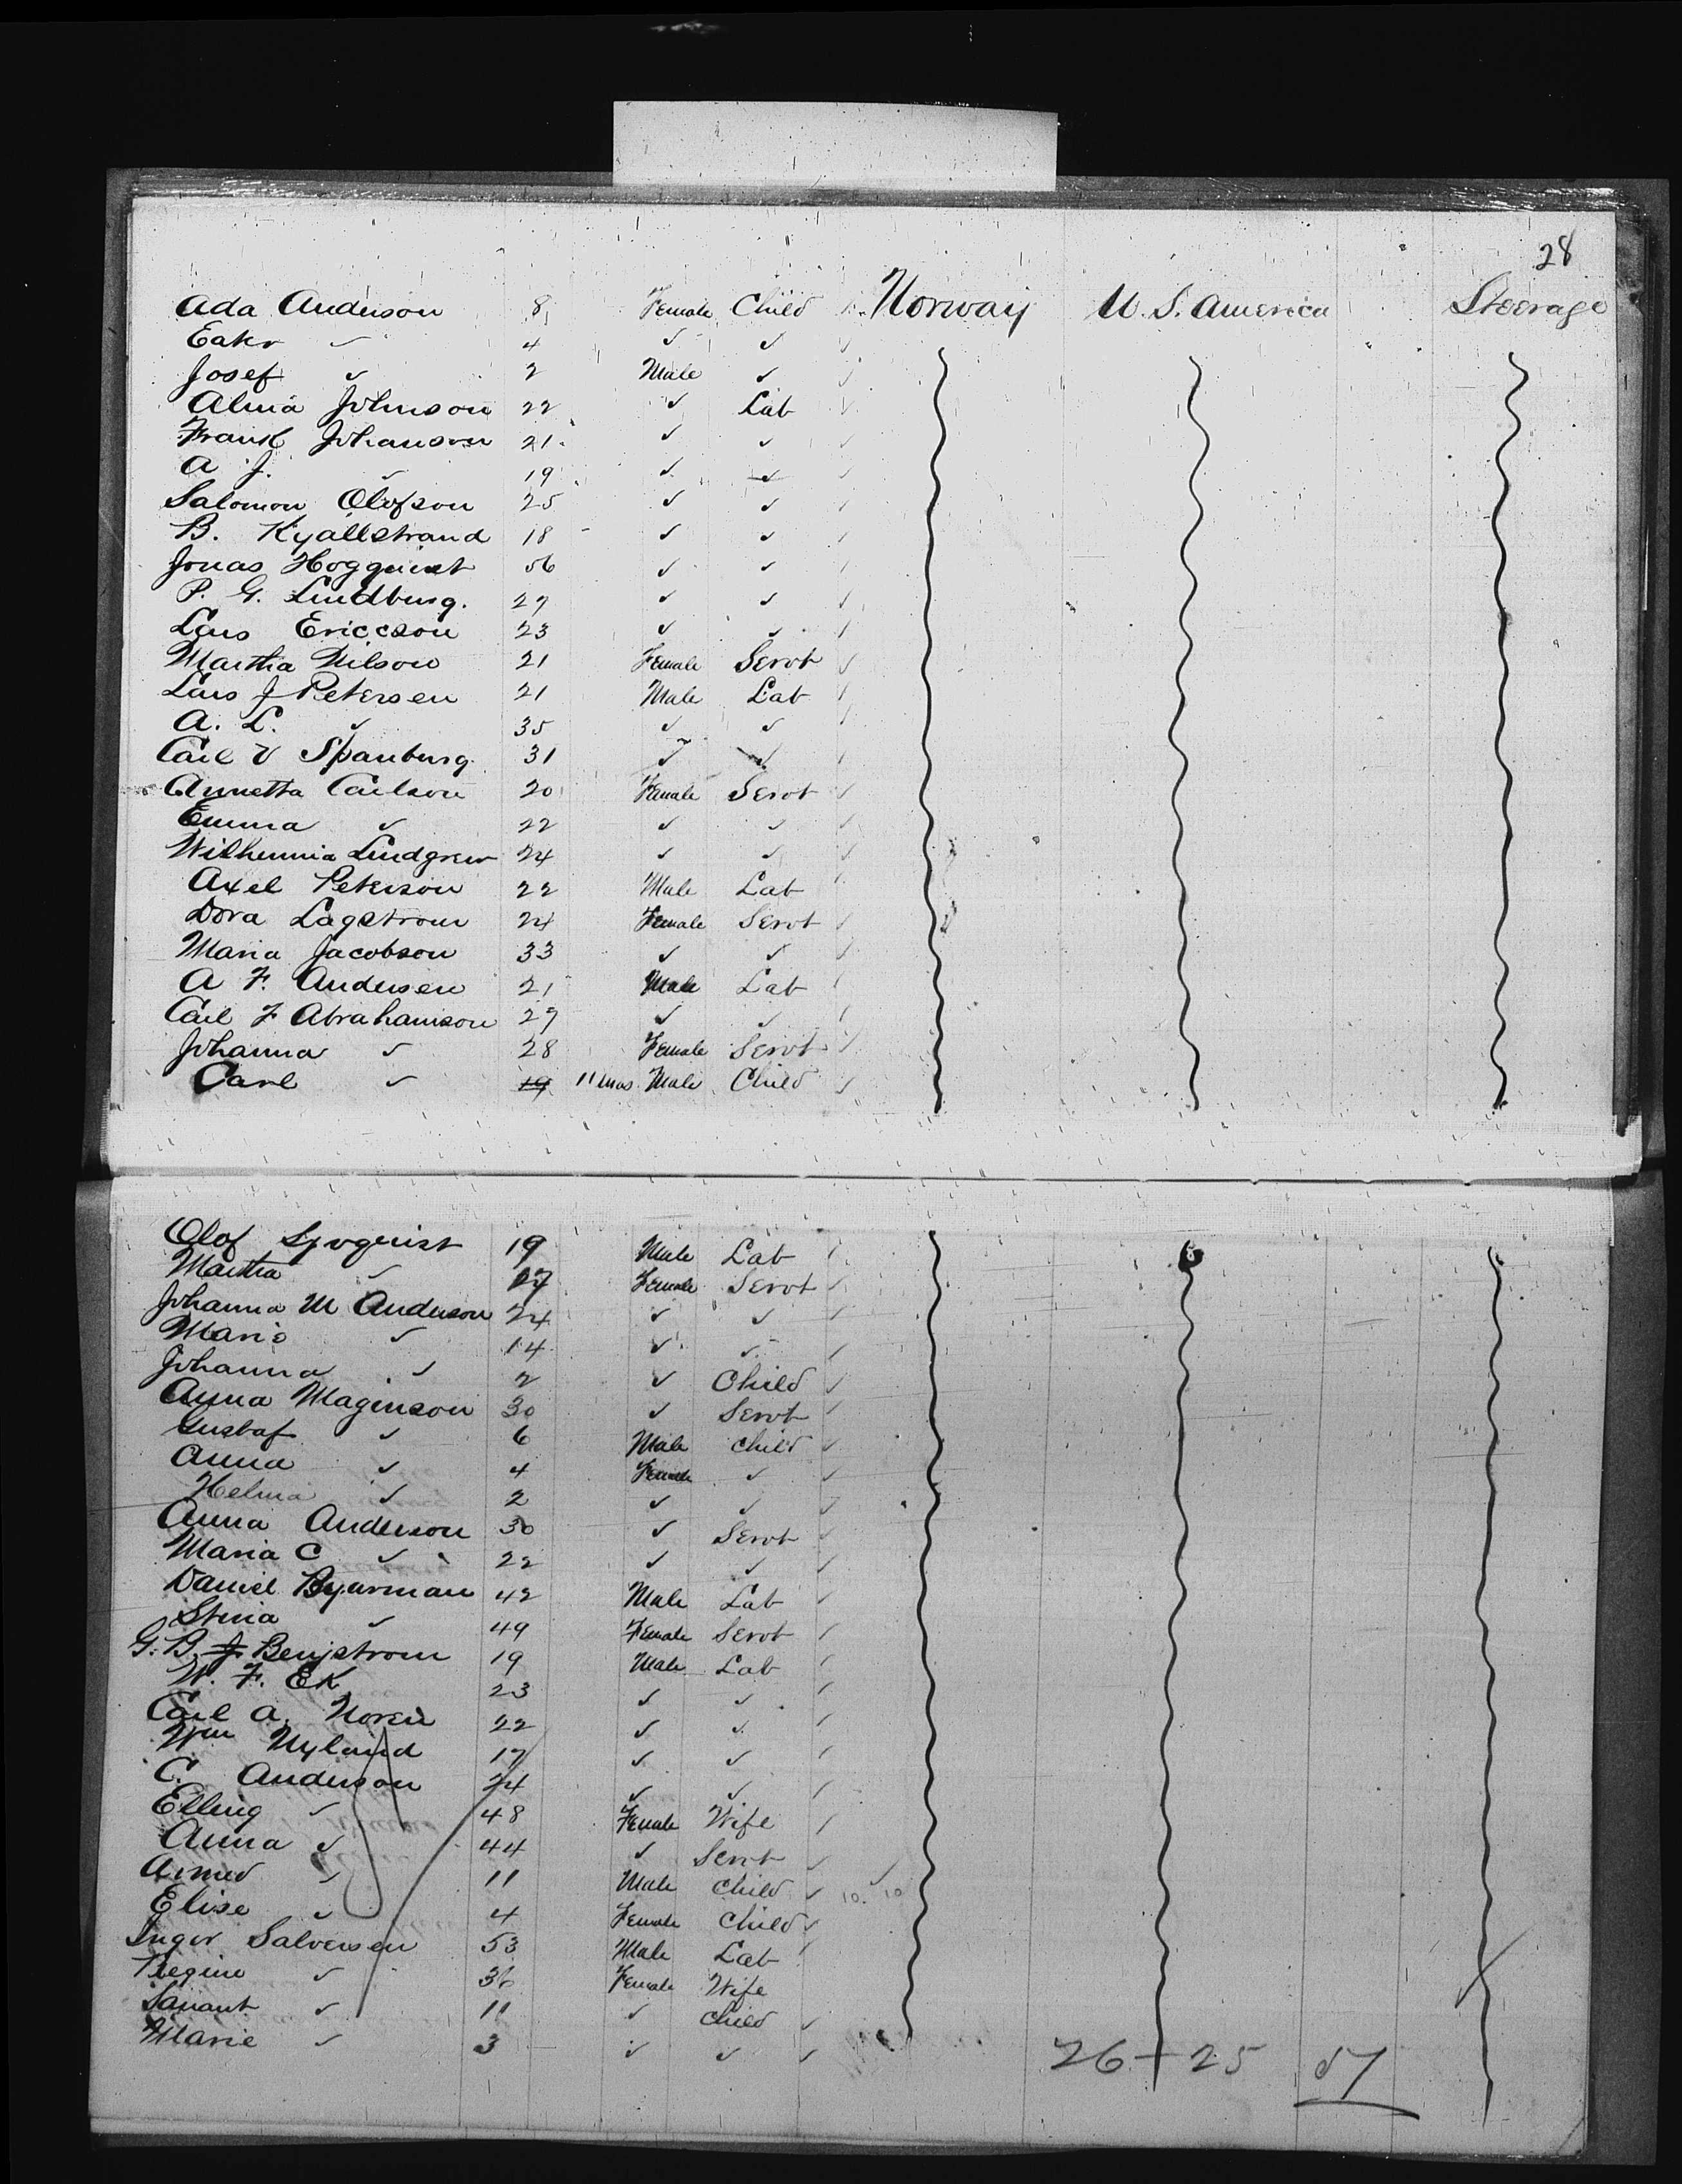 28
Ada Anderson 8 Female Child Norway U. S. America Steerage
Eaker ✓ 4 ✓ ✓
Josef ✓ 2 Male ✓
Alma Johnson 22 ✓ Lab
Frank Johanson 21 ✓ ✓
A J. ✓ 19 ✓ ✓
Salomon Olofson 25 ✓ ✓
B. Kyallstrand 18 ✓ ✓
Jonas Hogquist 56 ✓ ✓
P. G. Lindburg. 27 ✓ ✓
Lars Ericcson 23 ✓ ✓
Martha Nilson 21 Female Servt
Lars J Petersen 21 Male Lab
A. L. ✓ 35 ✓ ✓
Carl V Spanburg 31 ✓ ✓
Annetta Carlson 20 Female Servt
Emma ✓ 22 ✓ ✓
Wilhemnia Lindgren 24 ✓ ✓
Axel Peterson 22 Male Lab
Dora Lagstrom 24 Female Servt
Maria Jacobson 33 ✓ ✓
A F. Andersen 21 Male Lab
Carl F Abrahamson 27 ✓ ✓
Johanna ✓ 28 Female Servt
Carl ✓ 19 11 mos Male Child
Olof Sjvquist 19 Male Lab
Martha ✓ 27 Female Servt
Johanna M Anderson 24 ✓ ✓
Marie ✓ 14 ✓ ✓
Johanna ✓ 2 ✓ Child
Anna Magenson 30 ✓ Servt
Gustaf ✓ 6 Male Child
Anna ✓ 4 Female ✓
Helma ✓ 2 ✓ ✓
Anna Anderson 30 ✓ Servt
Maria C ✓ 22 ✓ ✓
Daniel Byurman 42 Male Lab
Stina ✓ 49 Female Servt
G. B. J. Benjstrom 19 Male Lab
W. F. Ek 23 ✓ ✓
Carl A. Noren 22 ✓ ✓
Wm Nyland 17 ✓ ✓
C. Anderson 24 ✓ ✓
Elling ✓ 48 Female Wife
Anna ✓ 44 ✓ Servt
✓ 11 Male Child 10. 10
Elise ✓ 4 Female Child
Inger Salvesen 53 Male Lab
Regine ✓ 36 Female Wife
✓ 11 ✓ Child
Marie ✓ 3 ✓ ✓
26 + 25 51